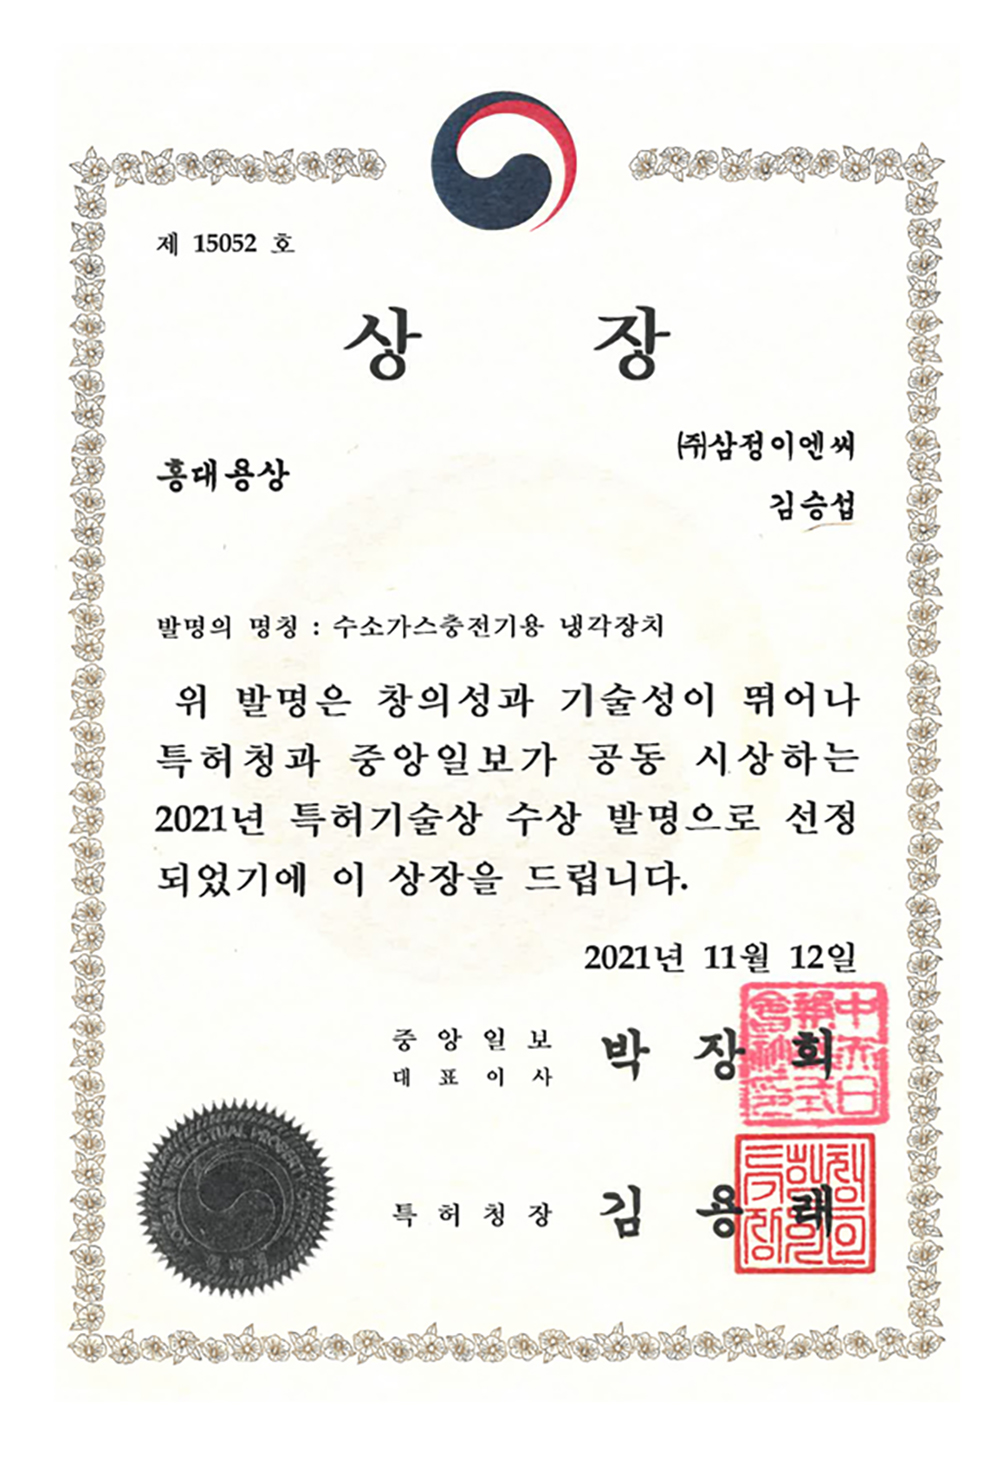 제 15052 호
상 장
홍대용상
㈜삼정이엔씨
김승섭
발명의 명칭 : 수소가스충전기용 냉각장치
위 발명은 창의성과 기술성이 뛰어나
특허청과 중앙일보가 공동 시상하는
2021년 특허기술상 수상 발명으로 선정
되었기에 이 상장을 드립니다.
2021년 11월 12일
중앙일보
대표이사
박장희
특허청장
김용래